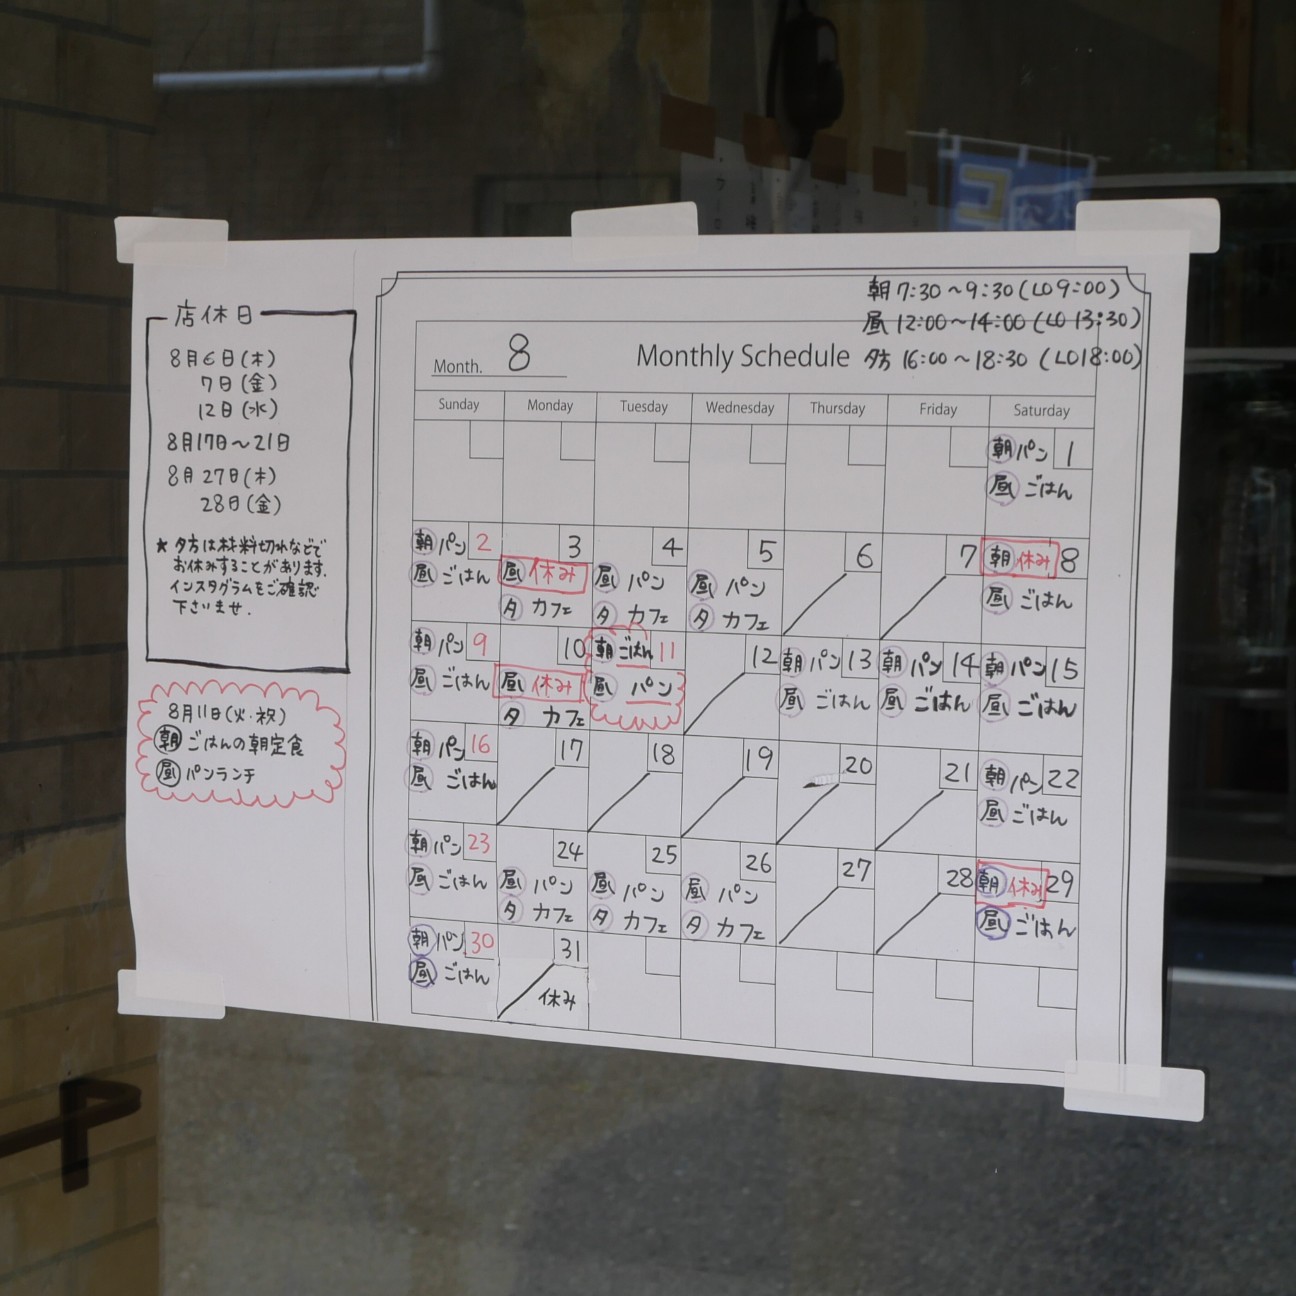 店休日
8月6日(木)
7日(金)
12日(水)
8月17日～21日
8月27日(木)
28日(金)
★夕方は材料切れなどで
お休みすることがあります.
インスタグラムをご確認
下さいませ.
8月11日(火・祝)
朝 ごはんの朝定食
昼 パンランチ
朝 7:30～9:30 (LO 9:00)
昼 12:00～14:00 (LO 13:30)
夕方 16:00～18:30 (LO18:00)
Month. 8
Monthly Schedule
Sunday Monday Tuesday Wednesday Thursday Friday Saturday
朝 パン 1
昼 ごはん
朝 パン 2
昼 ごはん
3
昼 休み
夕 カフェ
4
昼 パン
夕 カフェ
5
昼 パン
夕 カフェ
6
7
朝 休み 8
昼 ごはん
朝 パン 9
昼 ごはん
10
昼 休み
夕 カフェ
朝 ごはん 11
昼 パン
12
朝 パン 13
昼 ごはん
朝 パン 14
昼 ごはん
朝 パン 15
昼 ごはん
朝 パン 16
昼 ごはん
17
18
19
20
21
朝 パン 22
昼 ごはん
朝 パン 23
昼 ごはん
24
昼 パン
夕 カフェ
25
昼 パン
夕 カフェ
26
昼 パン
夕 カフェ
27
28
朝 休み 29
昼 ごはん
朝 パン 30
昼 ごはん
31
休み